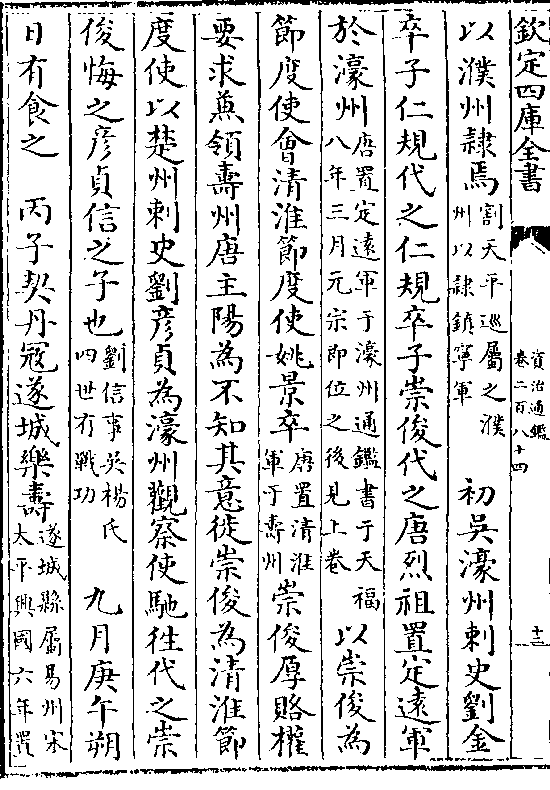 欽定四庫全書
資治通鑑
卷二百八十四
十三
以濮州隸焉割天平巡屬之濮
州以隸鎮寧軍 初吳濠州刺史劉金
卒子仁規代之仁規卒子崇俊代之唐烈祖置定遠軍
於濠州唐置定遠軍于濠州通鑑書于天福
八年三月元宗即位之後見上卷 以崇俊為
節度使會清淮節度使姚景卒唐置清淮
軍于壽州崇俊厚賂權
要求兼領壽州唐主陽為不知其意徙崇俊為清淮節
度使以楚州刺史劉彥貞為濠州觀察使馳往代之崇
俊悔之彥貞信之子也劉信事吳楊氏
四世有戰功 九月庚午朔
日有食之 丙子契丹寇遂城樂壽遂城縣屬易州宋
太平興國六年置